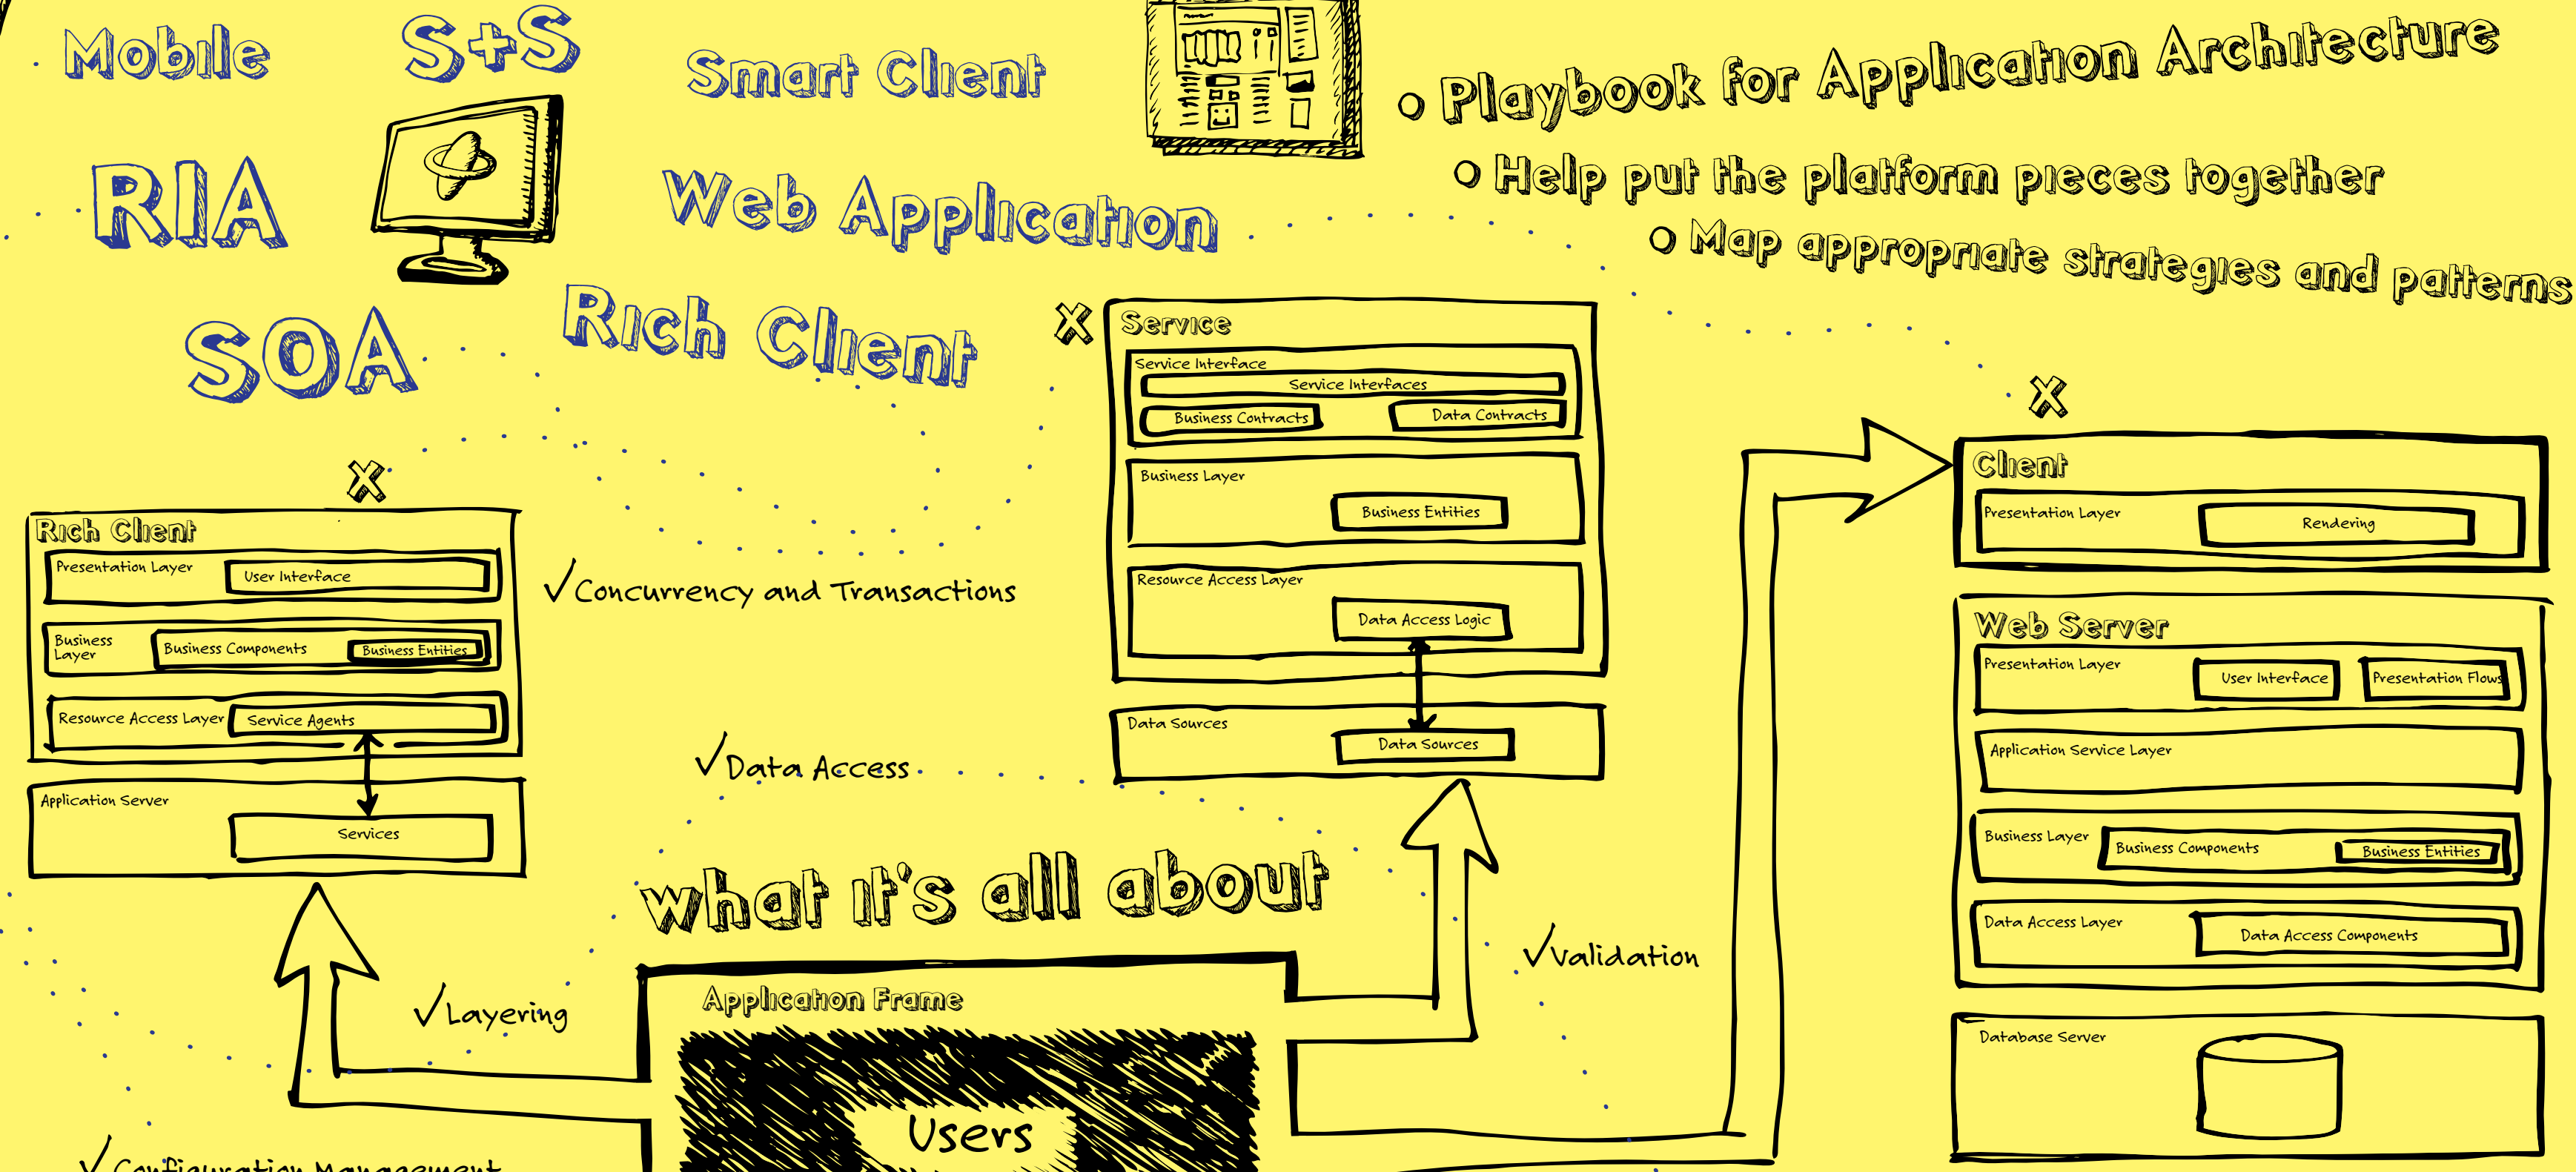 Mobile
S+S
Smart Client
RIA
Web Application
SOA
Rich Client
Playbook for Application Architecture
Help put the platform pieces together
Map appropriate strategies and patterns
X
Rich Client
Presentation Layer
User Interface
Business
Layer
Business Components
Business Entities
Resource Access Layer
Service Agents
Application Server
Services
✓Concurrency and Transactions
✓Data Access
X
Service
Service Interface
Service Interfaces
Business Contracts
Data Contracts
Business Layer
Business Entities
Resource Access Layer
Data Access Logic
Data Sources
Data Sources
X
Client
Presentation Layer
Rendering
Web Server
Presentation Layer
User Interface
Presentation Flows
Application Service Layer
Business Layer
Business Components
Business Entities
Data Access Layer
Data Access Components
Database Server
what it's all about
✓Validation
✓Layering
Application Frame
Users
✓Configuration Management